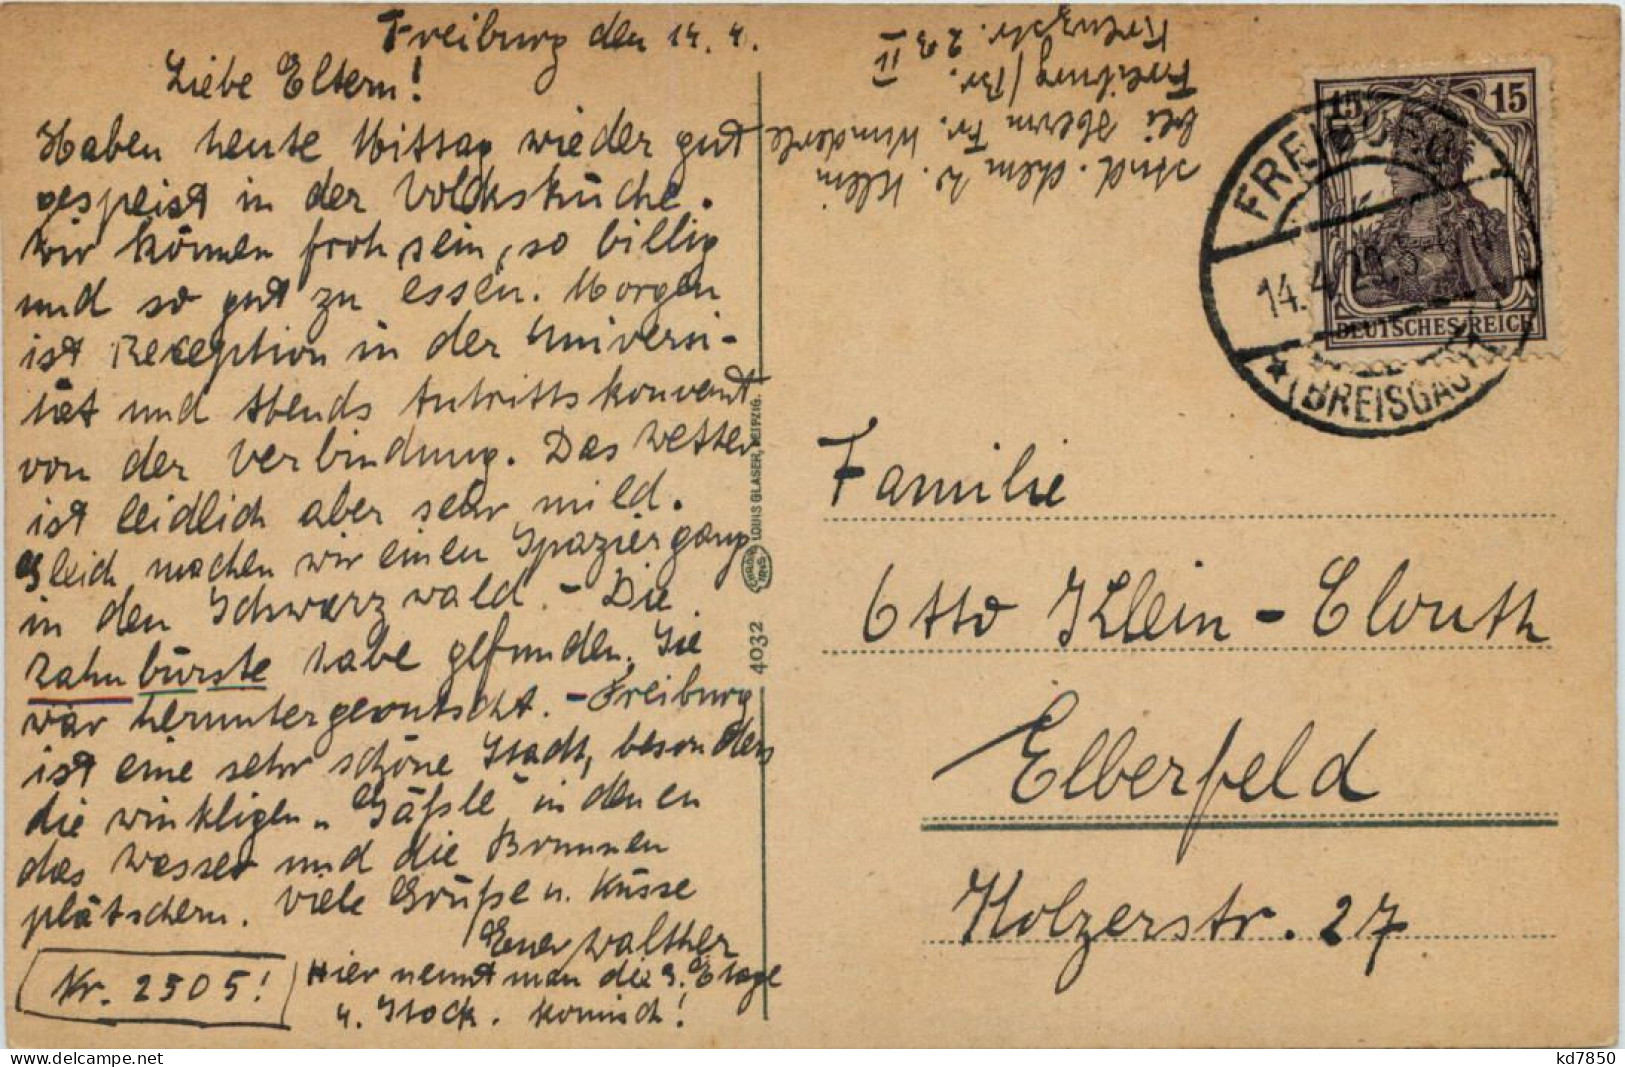 Freiburg den 14. 4.
Liebe Eltern!
Haben heute Mittag wieder gut
gespeist in der Volksküche.
Wir können froh sein, so billig
und so gut zu essen. Morgen
ist Reception in der Universi-
tät und Abends Antrittskonvent
von der Verbindung. Das Wetter
ist leidlich aber sehr mild.
Gleich machen wir einen Spaziergang
in den Schwarzwald. - Die
Zahnbürste habe gefunden. Sie
war heruntergerutscht. - Freiburg
ist eine sehr schöne Stadt, besonders
die winkligen „Gäßle" in denen
das Wasser und die Brunnen
plätschern. Viele Grüße u. Küsse
Euer Walther
Nr. 2505!
Hier nennt man die 3. Etage
4. Stock. Komisch!
stud. chem W. Klein
bei Fr. Wunderle
Freiburg/Br.
Kreuzstr. 23 II
4032
LOUIS GLASER, LEIPZIG.
15 15
DEUTSCHES REICH
FREIBURG
14.4.20.5-
(BREISGAU)
Familie
Otto Klein-Clouth
Elberfeld
Holzerstr. 27
kd7850